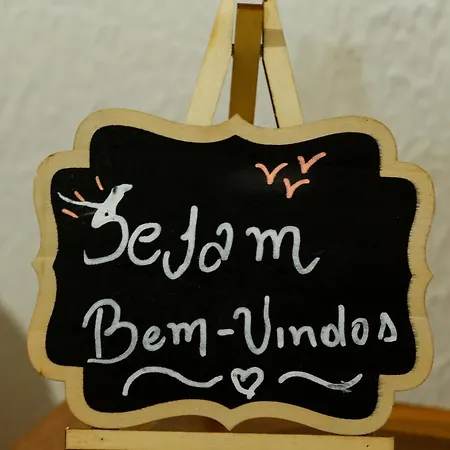 Sejam
Bem-Vindos